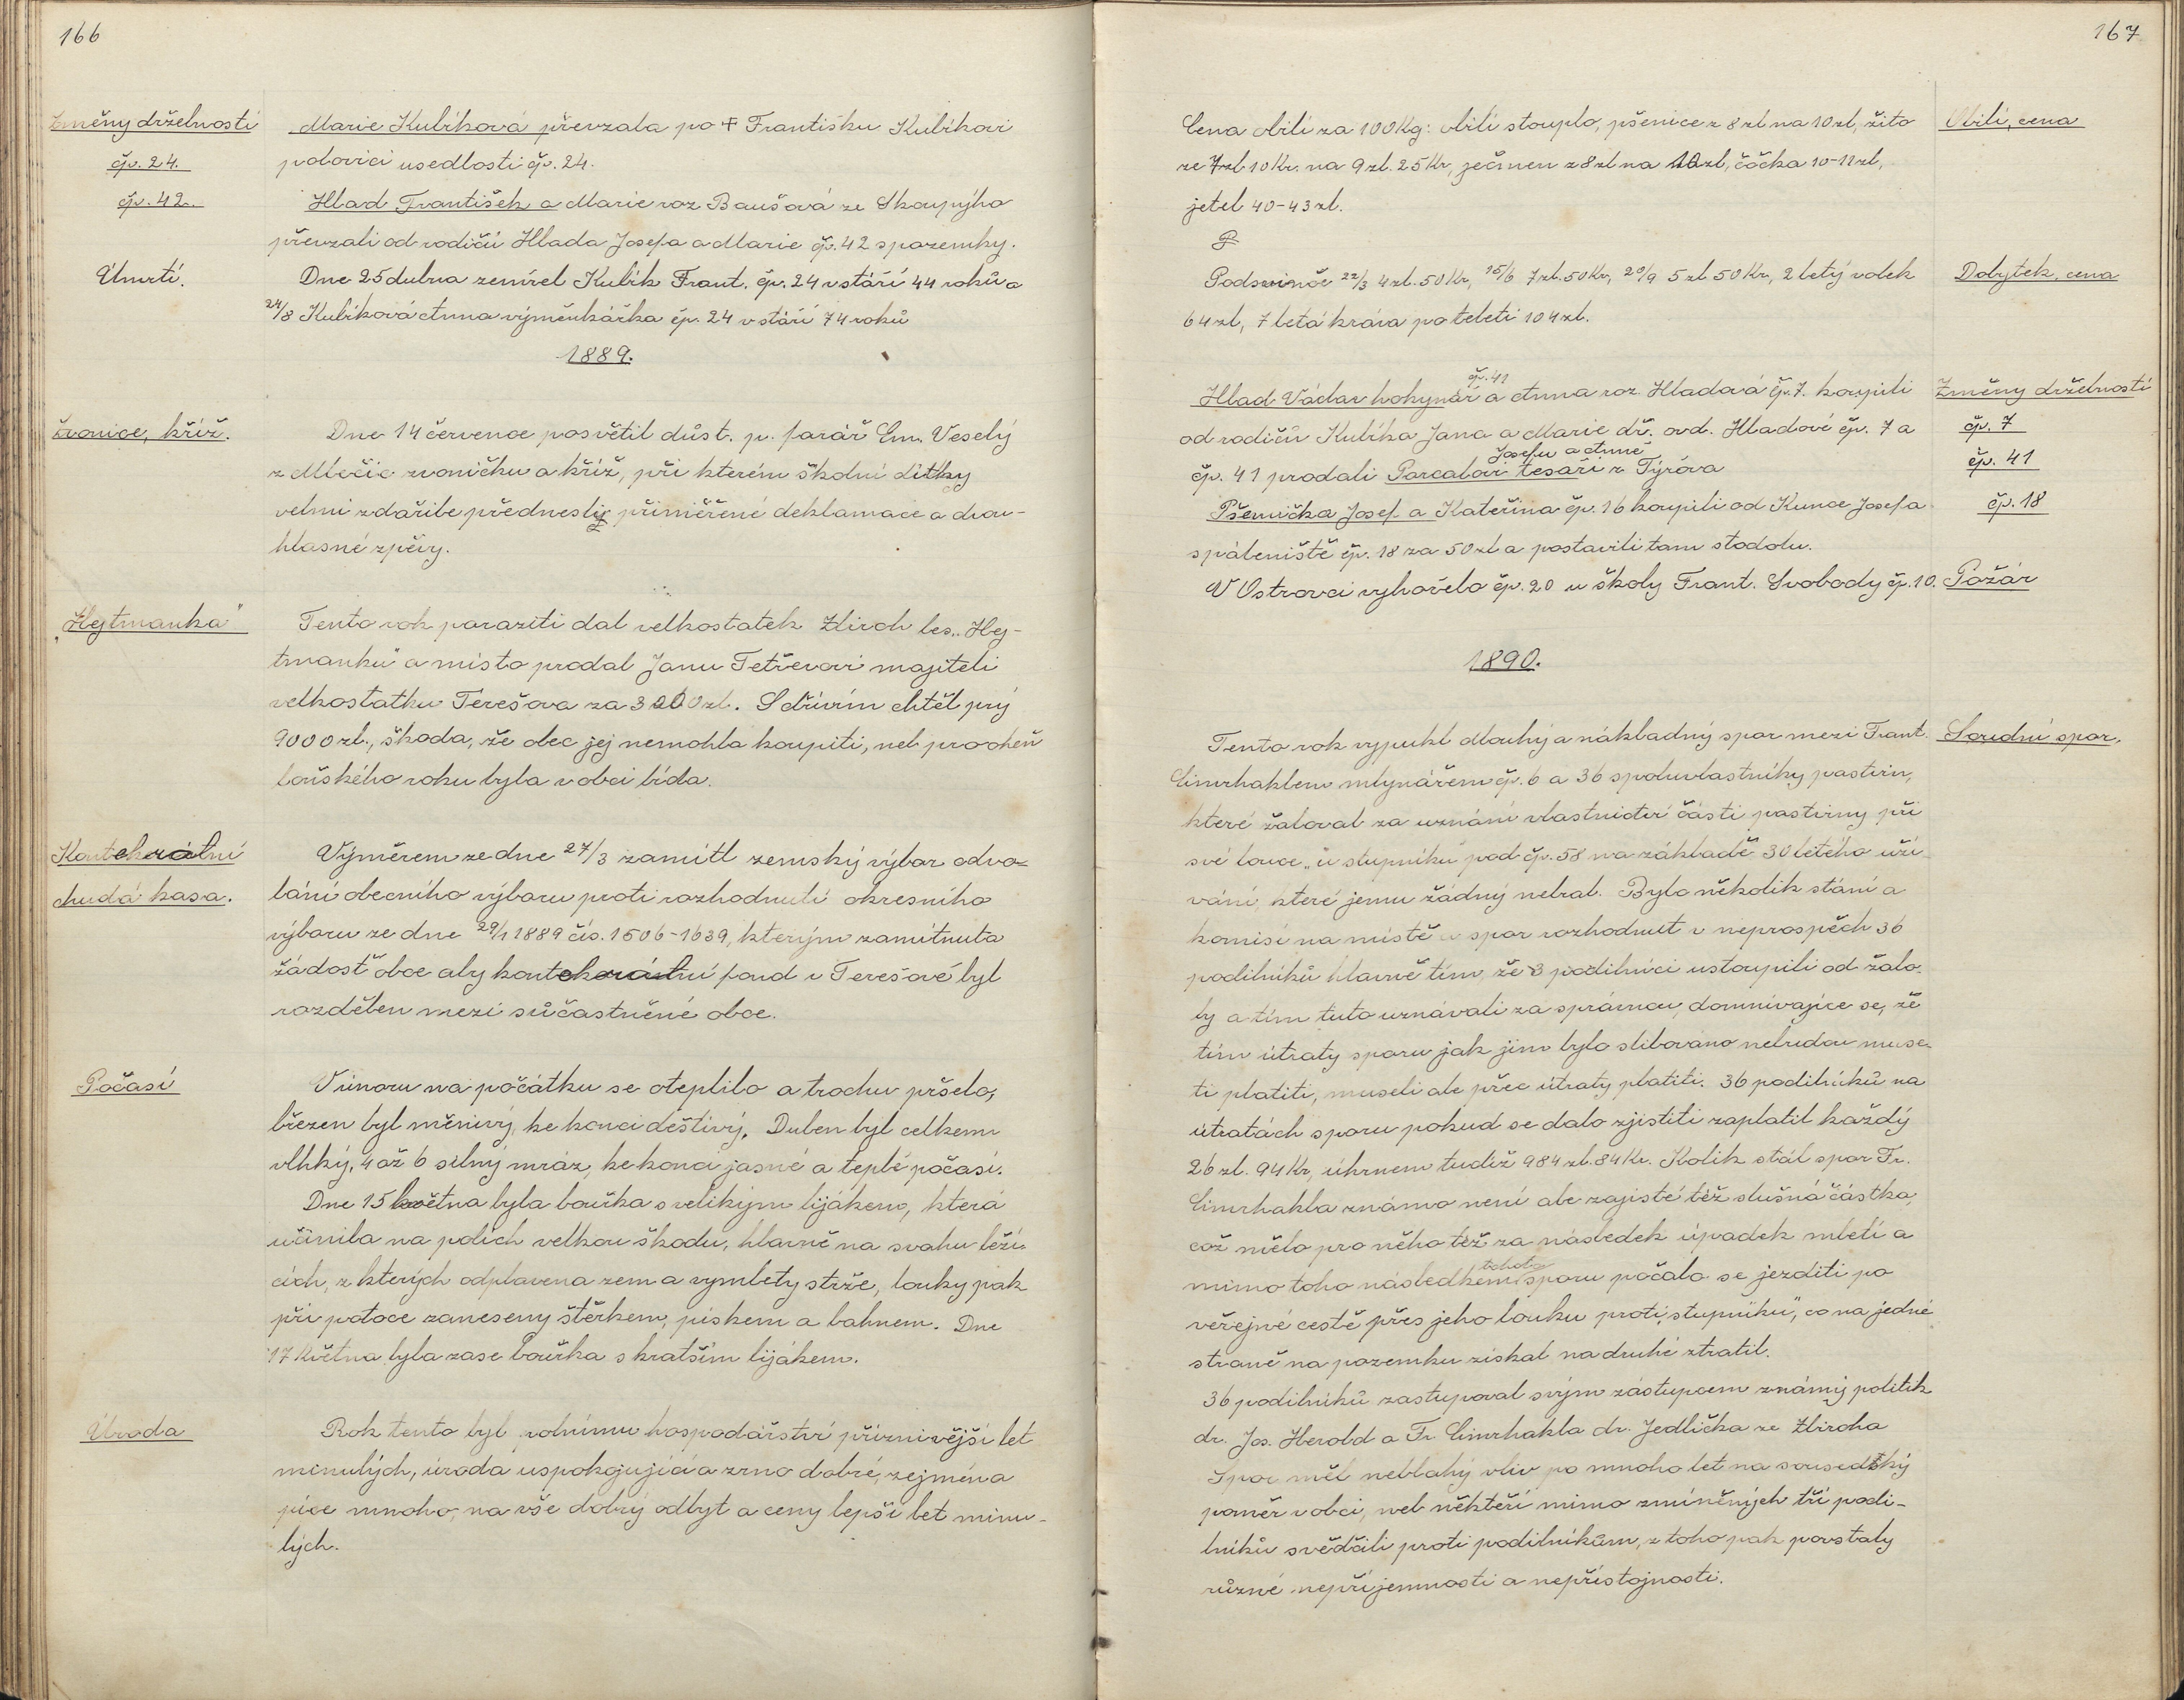 166
Změny držebnosti
čp. 24.
čp. 42.
Marie Kubíková převzala po † Františku Kubíkovi
polovici usedlosti čp. 24.
Hlad František a Marie roz Baušová ze Skoupýho
převzali od rodičů Hlada Josefa a Marie čp. 42 s pozemky.
Úmrtí.
Dne 25 dubna zemřel Kubík Frant. čp. 24 v stáří 44 roků a
24/8 Kubíková Anna výměnkářka čp. 24 v stáří 74 roků
1889.
Zvonice, kříž.
Dne 14 července posvětil důst. p. farář Em. Veselý
z Mlečic zvoničku a kříž, při kterém školní dítky
velmi zdařile přednesly přiměřené deklamace a dvou-
hlasné zpěvy.
„Hejtmanka"
Tento rok poraziti dal velkostatek Zbiroh les „Hej-
tmanku" a místo prodal Janu Tetřevovi majiteli
velkostatku Terešova za 3000 zl. S dřívím chtěl prý
9000 zl., škoda, že obec jej nemohla koupiti, neb pro oheň
loňského roku byla v obci bída.
Kontekrátní
chudá kasa.
Výměrem ze dne 27/3 zamítl zemský výbor odvo-
lání obecního výboru proti rozhodnutí okresního
výboru ze dne 29/1 1889 čís. 1506-1639, kterým zamítnuta
žádost obce aby kontekrátní fond v Terešově byl
rozdělen mezi súčastněné obce.
Počasí
V únoru na počátku se oteplilo a trochu pršelo,
březen byl měnivý, ke konci deštivý. Duben byl celkem
vlhký, 4 až 6 silný mráz, ke konci jasné a teplé počasí.
Dne 15 května byla bouřka s velikým lijákem, která
učinila na polích velkou škodu, hlavně na svahu leží-
cích, z kterých odplavena zem a vymlety strže, louky pak
při potoce zaneseny štěrkem, pískem a bahnem. Dne
17 května byla zase bouřka s kratším lijákem.
Úroda
Rok tento byl polnímu hospodářství příznivější let
minulých, úroda uspokojující a zrno dobré, zejména
píce mnoho, na vše dobrý odbyt a ceny lepší let minu-
lých.
167
Cena obilí za 100 Kg: obilí stouplo, pšenice z 8 zl na 10 zl, žito
ze 7 zl. 10 Kr. na 9 zl. 25 Kr, ječmen z 8 zl na 10 zl, čočka 10-12 zl,
jetel 40-43 zl.
Obilí, cena
P
Podsvinče 22/3 4 zl. 50 Kr, 15/6 7 zl. 50 Kr, 20/9 5 zl 50 Kr, 2 letý volek
64 zl, 7 letá kráva po teleti 104 zl.
Dobytek, cena
čp. 41
Hlad Václav hokynář a Anna roz. Hladová čp. 7. koupili
od rodičů Kubíka Jana a Marie dř. ovd. Hladové čp. 7 a
Josefu a Anně
čp. 41 prodali Parcalovi tesaři z Týřova
Pšenička Josef a Kateřina čp. 16 koupili od Kunce Josefa
spáleniště čp. 18 za 50 zl a postavili tam stodolu.
V Ostrovci vyhořelo čp. 20 u školy Frant. Svobody čp. 10.
Změny držebností
čp. 7
čp. 41
čp. 18
Požár
1890.
Soudní spor.
Tento rok vypukl dlouhý a nákladný spor mezi Frant.
Cimrhaklem mlynářem čp. 6 a 36 spoluvlastníky pastvin,
které žaloval za uznání vlastnictví části pastviny při
své louce „u stupníku" pod čp. 58 na základě 30 letého uží-
vání, které jemu žádný nebral. Bylo několik stání a
komisí na místě a spor rozhodnut v neprospěch 36
podílníků hlavně tím, že 3 podílníci ustoupili od žalo-
by a tím tuto uznávali za správnou, domnívajíce se, že
tím útraty sporu jak jim bylo slibováno nebudou muse-
ti platiti, museli ale přec útraty platiti. 36 podílníků na
útratách sporu pokud se dalo zjistiti zaplatil každý
26 zl. 94 Kr, úhrnem tudíž 984 zl. 84 Kr. Kolik stál spor Fr.
Cimrhakla známo není ale zajisté též slušná částka,
což mělo pro něho též za následek úpadek mletí a
tohoto
mimo toho následkem sporu počalo se jezditi po
veřejné cestě přes jeho louku proti „stupníku", co na jedné
straně na pozemku získal na druhé ztratil.
36 podílníků zastupoval svým zástupcem známý politik
dr. Jos. Herold a Fr. Cimrhakla dr. Jedlička ze Zbiroha
Spor měl neblahý vliv po mnoho let na sousedský
poměr v obci, neb někteří mimo zmíněných tří podí-
lníků svědčili proti podílníkům, z toho pak povstaly
různé nepříjemnosti a nepřístojnosti.